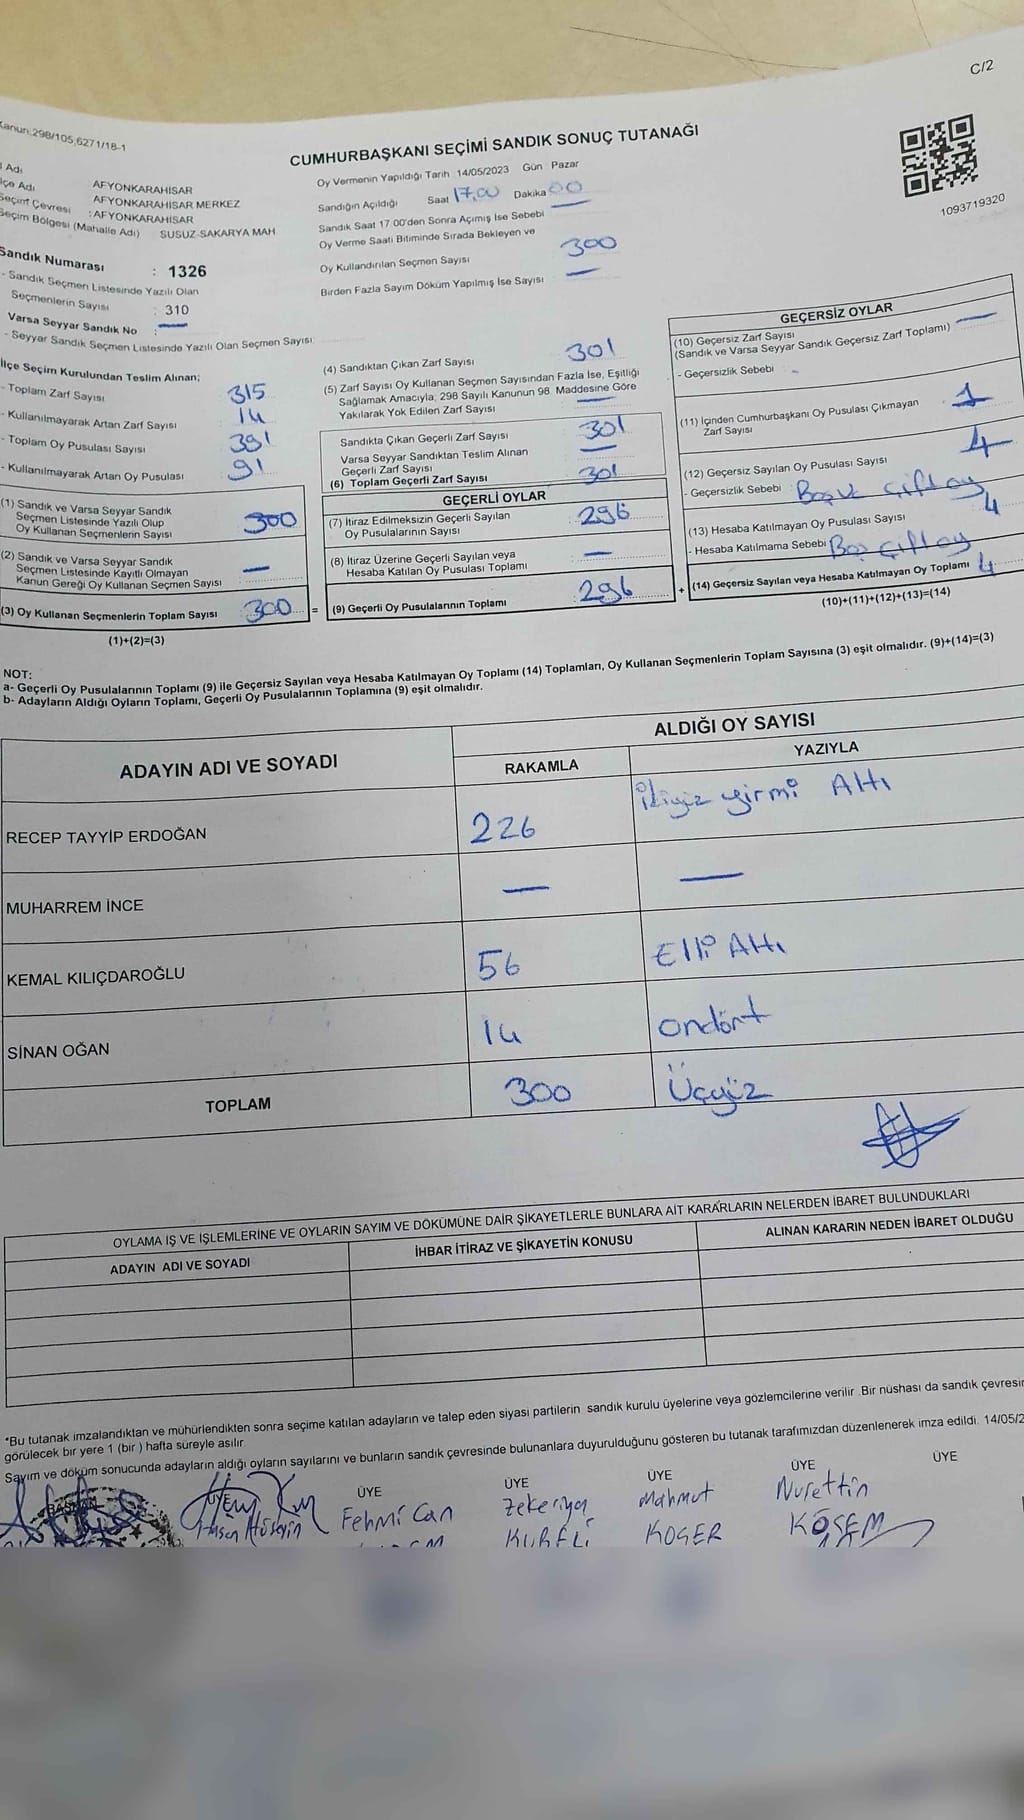 C/2
Kanun:298/105,6271/18-1
CUMHURBAŞKANI SEÇİMİ SANDIK SONUÇ TUTANAĞI
1093719320
Adı AFYONKARAHİSAR
İlçe Adı AFYONKARAHİSAR MERKEZ
Seçim Çevresi :AFYONKARAHİSAR
Seçim Bölgesi (Mahalle Adı) SUSUZ-SAKARYA MAH
Sandık Numarası : 1326
- Sandık Seçmen Listesinde Yazılı Olan
Seçmenlerin Sayısı : 310
Varsa Seyyar Sandık No : —
- Seyyar Sandık Seçmen Listesinde Yazılı Olan Seçmen Sayısı:
İlçe Seçim Kurulundan Teslim Alınan;
- Toplam Zarf Sayısı 315
- Kullanılmayarak Artan Zarf Sayısı 14
- Toplam Oy Pusulası Sayısı 391
- Kullanılmayarak Artan Oy Pusulası 91
(1) Sandık ve Varsa Seyyar Sandık
Seçmen Listesinde Yazılı Olup
Oy Kullanan Seçmenlerin Sayısı 300
(2) Sandık ve Varsa Seyyar Sandık
Seçmen Listesinde Kayıtlı Olmayan
Kanun Gereği Oy Kullanan Seçmen Sayısı —
(3) Oy Kullanan Seçmenlerin Toplam Sayısı 300 =
(1)+(2)=(3)
Oy Vermenin Yapıldığı Tarih 14/05/2023 Gün Pazar
Sandığın Açıldığı Saat 17,00 Dakika 00
Sandık Saat 17 00'den Sonra Açımış İse Sebebi —
Oy Verme Saati Bitiminde Sırada Bekleyen ve
Oy Kullandırılan Seçmen Sayısı 300
Birden Fazla Sayım Döküm Yapılmış İse Sayısı —
(4) Sandıktan Çıkan Zarf Sayısı 301
(5) Zarf Sayısı Oy Kullanan Seçmen Sayısından Fazla İse, Eşitliği
Sağlamak Amacıyla, 298 Sayılı Kanunun 98. Maddesine Göre
Yakılarak Yok Edilen Zarf Sayısı —
Sandıkta Çıkan Geçerli Zarf Sayısı 301
Varsa Seyyar Sandıktan Teslim Alınan
Geçerli Zarf Sayısı —
(6) Toplam Geçerli Zarf Sayısı 301
GEÇERLİ OYLAR
(7) İtiraz Edilmeksizin Geçerli Sayılan
Oy Pusulalarının Sayısı 296
(8) İtiraz Üzerine Geçerli Sayılan veya
Hesaba Katılan Oy Pusulası Toplamı —
(9) Geçerli Oy Pusulalarının Toplamı 296 +
GEÇERSİZ OYLAR
(10) Geçersiz Zarf Sayısı —
(Sandık ve Varsa Seyyar Sandık Geçersiz Zarf Toplamı)
- Geçersizlik Sebebi : -
(11) İçinden Cumhurbaşkanı Oy Pusulası Çıkmayan
Zarf Sayısı 1
(12) Geçersiz Sayılan Oy Pusulası Sayısı 4
- Geçersizlik Sebebi : Boş ve çift oy
(13) Hesaba Katılmayan Oy Pusulası Sayısı 4
- Hesaba Katılmama Sebebi: Boş çift oy
(14) Geçersiz Sayılan veya Hesaba Katılmayan Oy Toplamı 4
(10)+(11)+(12)+(13)=(14)
NOT:
a- Geçerli Oy Pusulalarının Toplamı (9) ile Geçersiz Sayılan veya Hesaba Katılmayan Oy Toplamı (14) Toplamları, Oy Kullanan Seçmenlerin Toplam Sayısına (3) eşit olmalıdır. (9)+(14)=(3)
b- Adayların Aldığı Oyların Toplamı, Geçerli Oy Pusulalarının Toplamına (9) eşit olmalıdır.
ADAYIN ADI VE SOYADI
ALDIĞI OY SAYISI
RAKAMLA YAZIYLA
RECEP TAYYİP ERDOĞAN 226 İkiyüz yirmi Altı
MUHARREM İNCE — —
KEMAL KILIÇDAROĞLU 56 Elli Altı
SİNAN OĞAN 14 ondört
TOPLAM 300 Üçyüz
OYLAMA İŞ VE İŞLEMLERİNE VE OYLARIN SAYIM VE DÖKÜMÜNE DAİR ŞİKAYETLERLE BUNLARA AİT KARARLARIN NELERDEN İBARET BULUNDUKLARI
ADAYIN ADI VE SOYADI İHBAR İTİRAZ VE ŞİKAYETİN KONUSU ALINAN KARARIN NEDEN İBARET OLDUĞU
*Bu tutanak imzalandıktan ve mühürlendikten sonra seçime katılan adayların ve talep eden siyasi partilerin sandık kurulu üyelerine veya gözlemcilerine verilir. Bir nüshası da sandık çevresin
görülecek bir yere 1 (bir ) hafta süreyle asılır
Sayım ve döküm sonucunda adayların aldığı oyların sayılarını ve bunların sandık çevresinde bulunanlara duyurulduğunu gösteren bu tutanak tarafımızdan düzenlenerek imza edildi. 14/05/2
BAŞKAN ÜYE ÜYE ÜYE ÜYE ÜYE ÜYE
Hasan Hüseyin Fehmi Can Zekeriya Mahmut Nurettin
KOGER KÖSEM